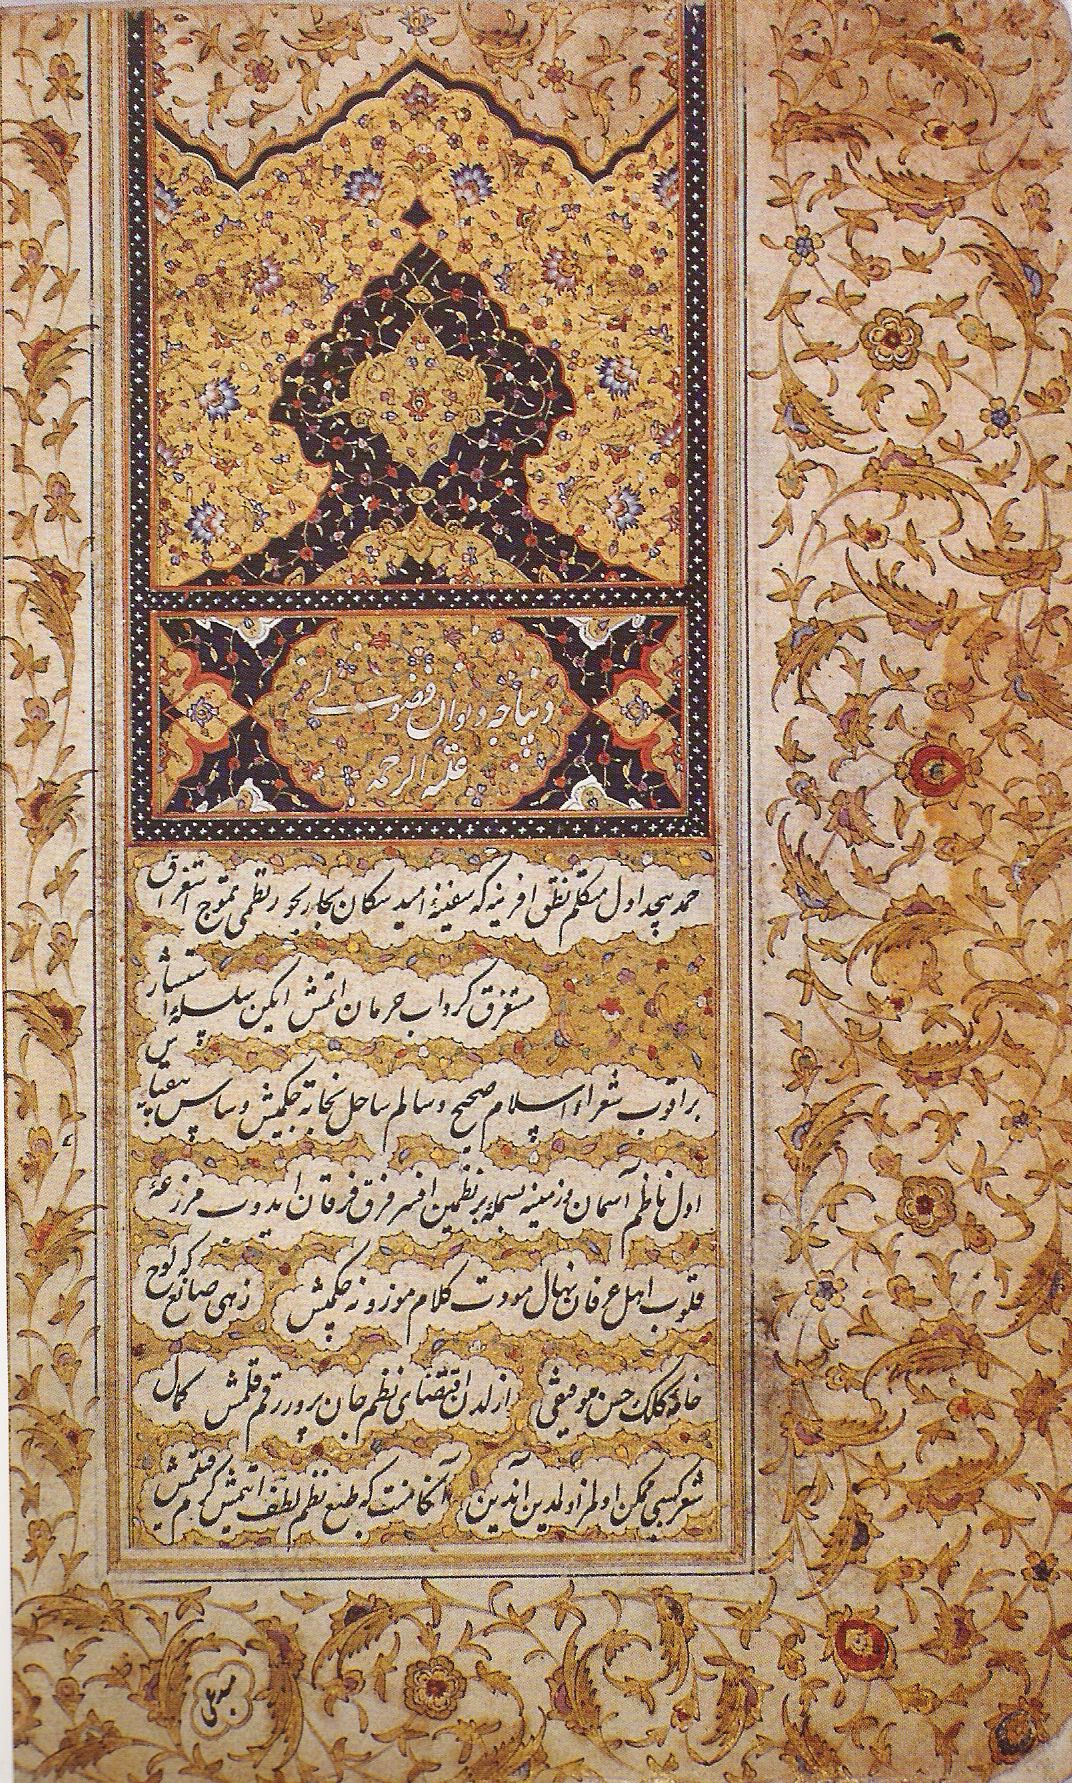 دیباجه دیوان فضولی
علیه الرحمه
حمد بیحد اول متکلم نطق آفرینه که سفینهٔ امید سکان بحار بحور نظمی تموج
مستغرق گرداب حرمان اتمش ایکن سلسلهٔ استثنا
براقوب شعراء اسلام صحیح و سالم ساحل نجاته چکمیش و سپاس بیقیاس
اول ناظم آسمان و زمینه بسمله بر نظمین افسر فرق فرقان ایدوب مزرعهٔ
قلوب اهل عرفانه نهال مودت کلام موزونه چکمیش زهی صانع که لوح
خامهٔ کلک حسن موفقی ازلدن اقتضای نظم جان پرور رقم قلمش کمال
شعر کسبی ممکن اولمز اولمدین آندین آنکا منت که طبع نظم لطف اتمیش کرم قیلمش